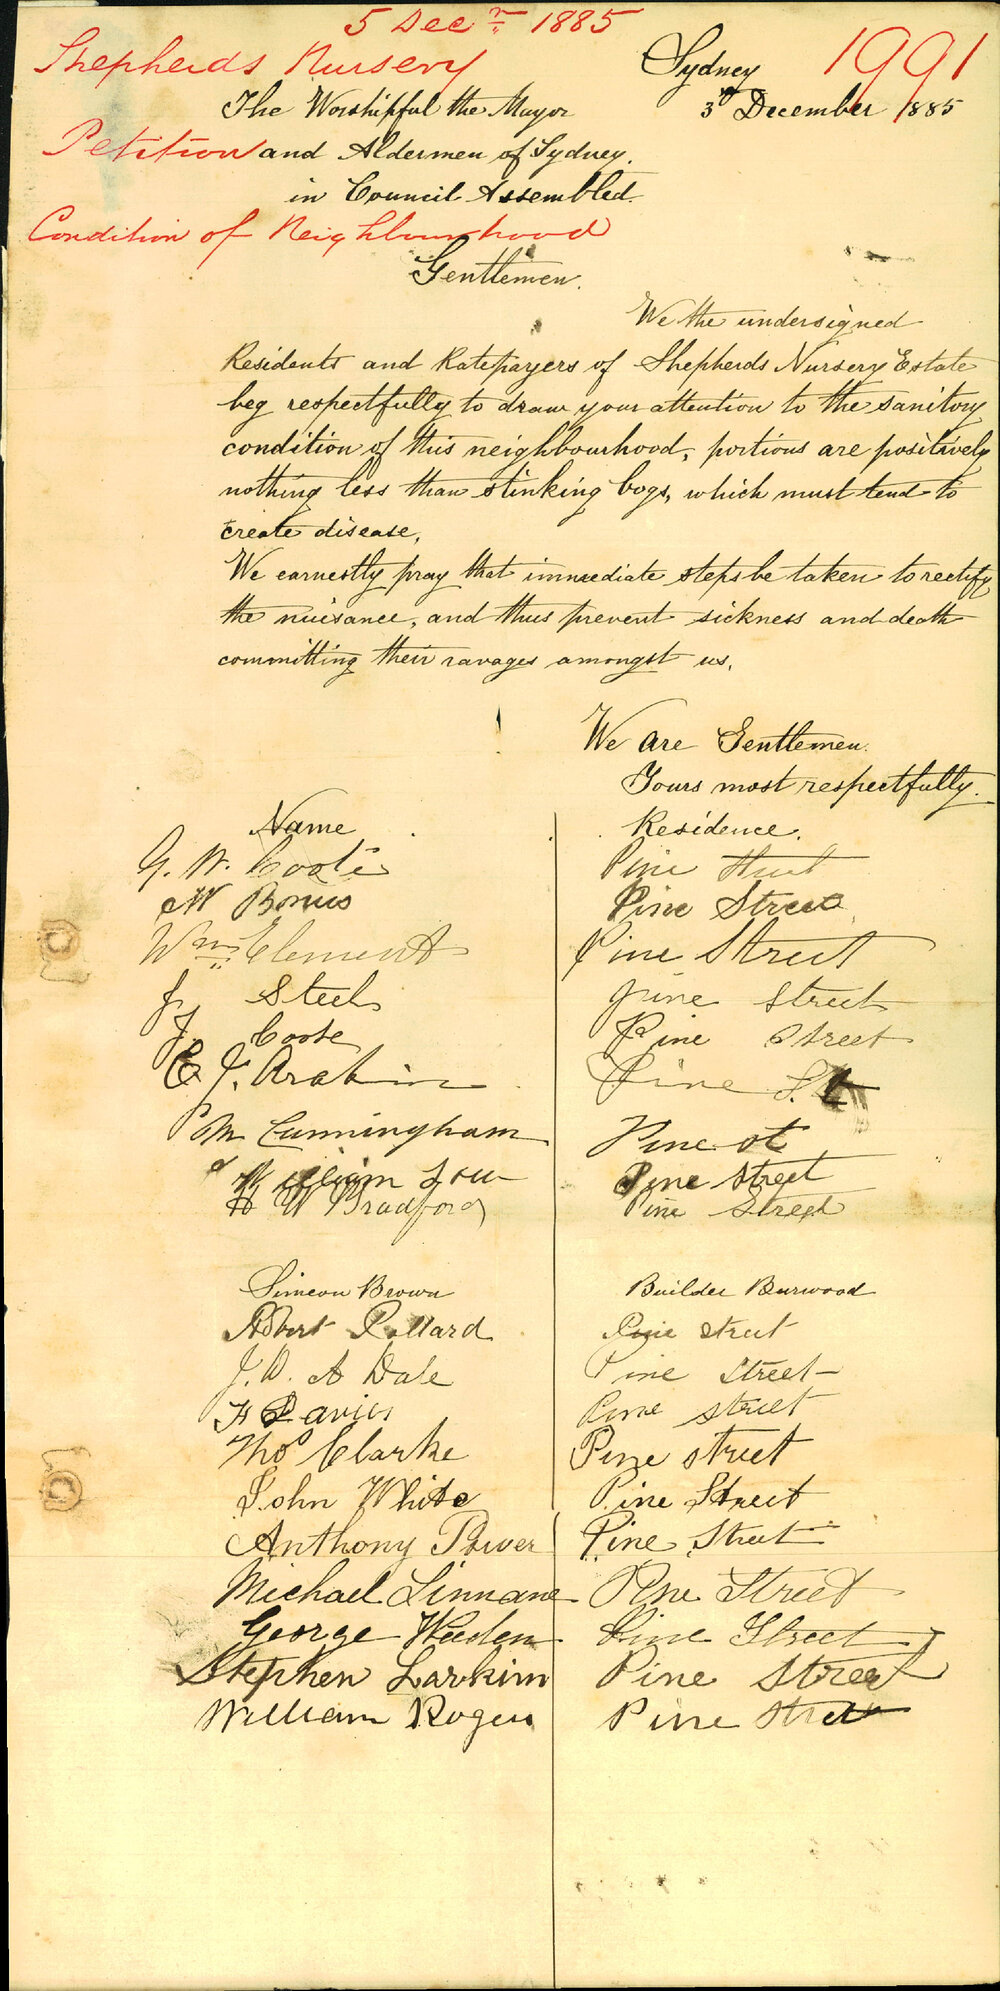 5 Decr 1885
Shepherds Nursery
Sydney
1991
The Worshipful the Mayor
3rd December 1885
Petition
and Aldermen of Sydney.
in Council Assembled.
Condition of Neighbourhood
Gentlemen.
We the undersigned
Residents and Ratepayers of Shepherds Nursery Estate
beg respectfully to draw your attention to the sanitory
condition of this neighbourhood, portions are positively
nothing less than stinking bogs, which must tend to
create disease.
We earnestly pray that immediate steps be taken to rectify
the nuisance, and thus prevent sickness and death
committing their ravages amongst us.
We are Gentlemen.
Yours most respectfully.
Name Residence.
G. W. Coote Pine Street
W Bonus Pine Street
Wm Clement Pine Street
J. Steel Pine Street
J. Coote Pine Street
E. J. Arabin Pine St
P M Cunningham Pine st
William Pine Street
H W Bradford Pine Street
Simeon Brown Builder Burwood
Robert Pollard Pine Street
J. D. A Dale Pine Street
H Davies Pine Street
Thos Clarke Pine Street
John White Pine Street
Anthony Power Pine Street
Michael Linnane Pine Street
George Weeden Pine Street
Stephen Larkim Pine Street
William Rogers Pine Street